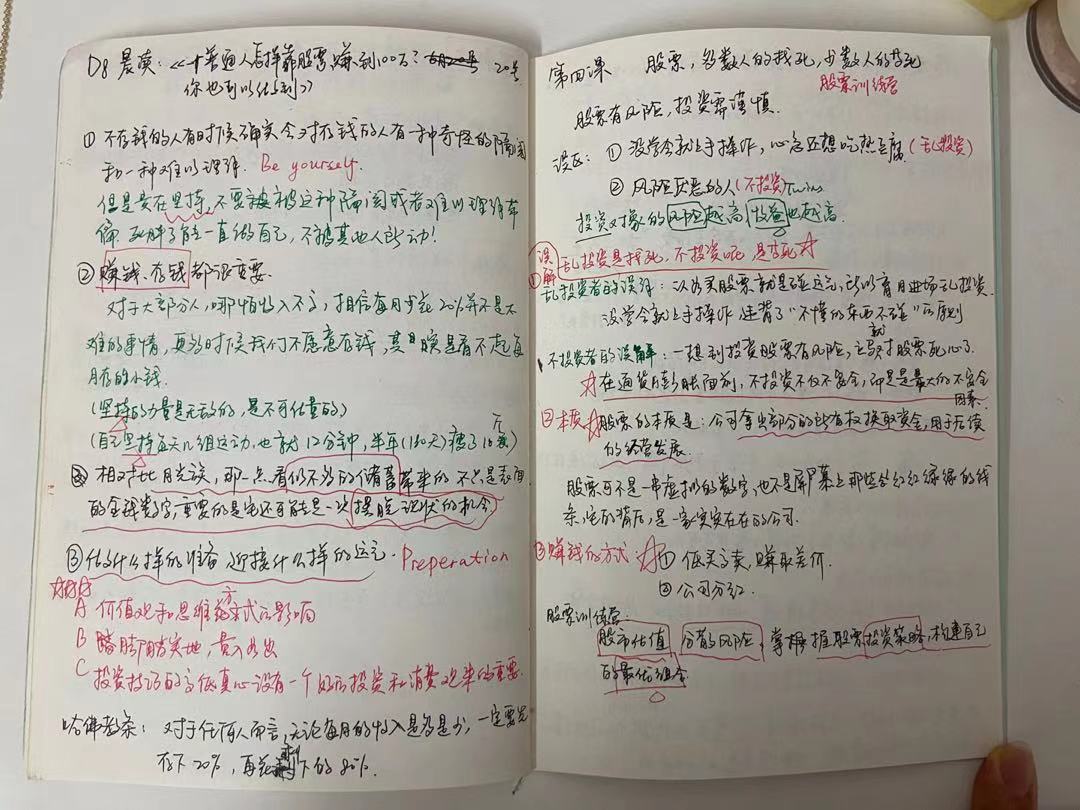 D8 晨读:《一个普通人怎样靠股票赚到100万? 20号
你也可以做到》
① 不存钱的人有时候确实会对存钱的人有一种奇怪的隔阂
和一种难以理解. Be yourself.
但是贵在坚持,不要被被这种隔阂或者难以理解带
偏. 到一直做自己,不被其他人所动!
② 赚钱、存钱都很重要.
对于大部分人,哪怕收入不高,相信每月少花20%并不是不
难的事情,更多时候我们不愿意存钱,其实是看不起每
月存的小钱.
(坚持的力量是无敌的,是不可估量的)
(自己坚持每天几组运动,也就12分钟,半年(180天)瘦了10斤)
② 相对比月光族,那一点看似不多的储蓄带来的不只是表面
的金钱数字,重要的是它还可能是一次摆脱现状的机会
③ 做什么样的准备 迎接什么样的运气. Preperation
A 价值观和思维方式的影响
B 脚踏实地,量入为出
C 投资技巧的高低真心没有一个好的投资和消费观来的重要.
哈佛教条: 对于任何人而言,无论每月的收入是多是少,一定要先
存下20%,再花剩下的80%.
第四课 股票,多数人的找死,少数人的等死
股票训练营
股票有风险,投资需谨慎.
误区: ① 没学会就上手操作,心急还想吃热豆腐(乱投资)
② 风险厌恶的人(不投资)Twins
投资对象的风险越高,收益也越高.
误解 乱投资是找死,不投资呢,是等死
① 乱投资者的误解: 认为买股票就是碰运气,所以盲目进场乱投资.
没学会就上手操作 违背了"不懂的东西不碰"的原则
不投资者的误解: 一想到投资股票有风险,立马就对股票死心了.
在通货膨胀面前,不投资不仅不安全,而是是最大的不安全
因素.
② 本质 股票的本质是: 公司拿出部分的所有权换取资金,用于后续
的经营发展.
股票可不是一串虚拟的数字,也不是屏幕上那些红红绿绿的线
条,它的背后,是一家实实在在的公司.
③ 赚钱的方式 ① 低买高卖,赚取差价.
② 公司分红.
股票训练营:
股市估值,分散风险,掌握股票投资策略,构建自己
的最优组合.